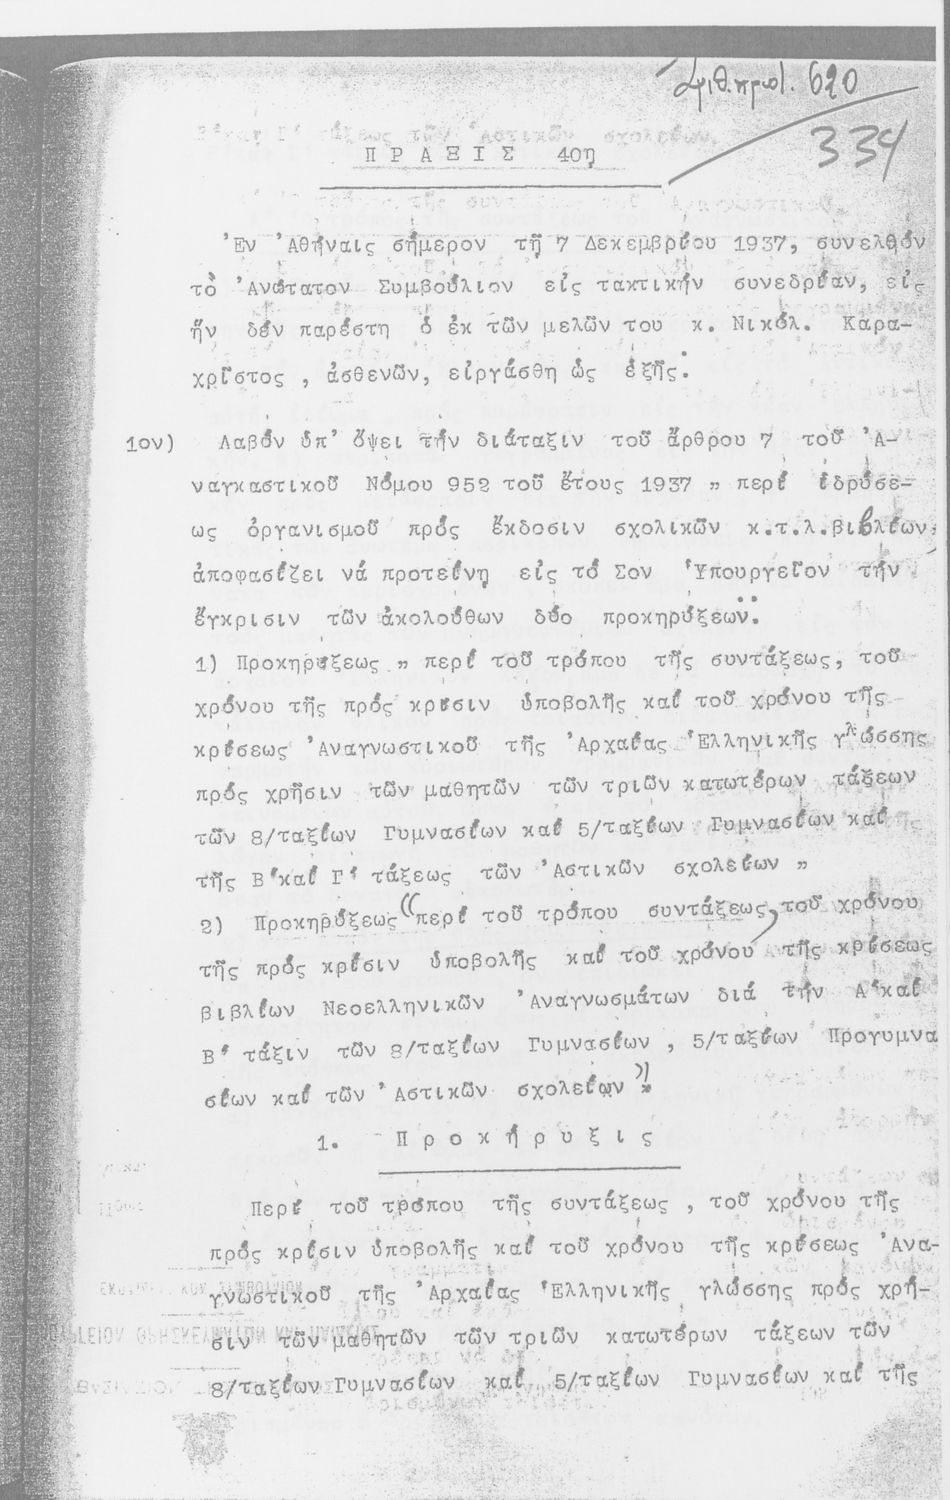 Αριθ.πρωτ. 620
334
Π Ρ Α Ξ Ι Σ 40η
Ἐν Ἀθήναις σήμερον τῇ 7 Δεκεμβρίου 1937, συνελθόν
τὸ Ἀνώτατον Συμβούλιον εἰς τακτικήν συνεδρίαν, εἰς
ἥν δέν παρέστη ὁ ἐκ τῶν μελῶν του κ. Νικόλ. Καρα-
χρῖστος , ἀσθενῶν, εἰργάσθη ὡς ἑξῆς:
1ον) Λαβόν ὑπ' ὄψει τήν διάταξιν τοῦ ἄρθρου 7 τοῦ Ἀ-
ναγκαστικοῦ Νόμου 952 τοῦ ἔτους 1937 " περί ἱδρύσε-
ως ὀργανισμοῦ πρός ἔκδοσιν σχολικῶν κ.τ.λ.βιβλίων,
ἀποφασίζει νά προτείνῃ εἰς τό Σον Ὑπουργεῖον τήν
ἔγκρισιν τῶν ἀκολούθων δύο προκηρύξεων:
1) Προκηρύξεως " περί τοῦ τρόπου τῆς συντάξεως, τοῦ
χρόνου τῆς πρός κρίσιν ὑποβολῆς καί τοῦ χρόνου τῆς
κρίσεως Ἀναγνωστικοῦ τῆς Ἀρχαίας Ἑλληνικῆς γλώσσης
πρός χρῆσιν τῶν μαθητῶν τῶν τριῶν κατωτέρων τάξεων
τῶν 8/ταξίων Γυμνασίων καί 5/ταξίων Γυμνασίων καί
τῆς Β'καί Γ' τάξεως τῶν Ἀστικῶν σχολείων "
2) Προκηρύξεως "περί τοῦ τρόπου συντάξεως, τοῦ χρόνου
τῆς πρός κρίσιν ὑποβολῆς καί τοῦ χρόνου τῆς κρίσεως
βιβλίων Νεοελληνικῶν Ἀναγνωσμάτων διά τήν Α'καί
Β' τάξιν τῶν 8/ταξίων Γυμνασίων , 5/ταξίων Προγυμνα
σίων καί τῶν Ἀστικῶν σχολείων".
1. Π ρ ο κ ή ρ υ ξ ι ς
Περί τοῦ τρόπου τῆς συντάξεως , τοῦ χρόνου τῆς
πρός κρίσιν ὑποβολῆς καί τοῦ χρόνου τῆς κρίσεως Ἀνα-
γνωστικοῦ τῆς Ἀρχαίας Ἑλληνικῆς γλώσσης πρός χρῆ-
σιν τῶν μαθητῶν τῶν τριῶν κατωτέρων τάξεων τῶν
8/ταξίων Γυμνασίων καί 5/ταξίων Γυμνασίων καί τῆς